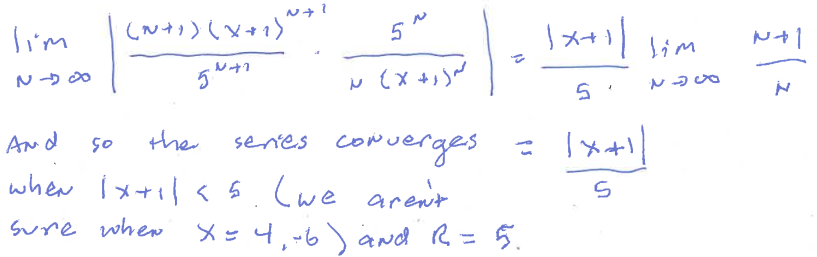 lim N→∞ | (N+1)(x+1)^{N+1} / 5^{N+1} · 5^N / N(x+1)^N | = |x+1| / 5 · lim N→∞ N+1 / N
And so the series converges = |x+1| / 5
when |x+1| < 5. (we aren't
sure when x = 4, -6) and R = 5.